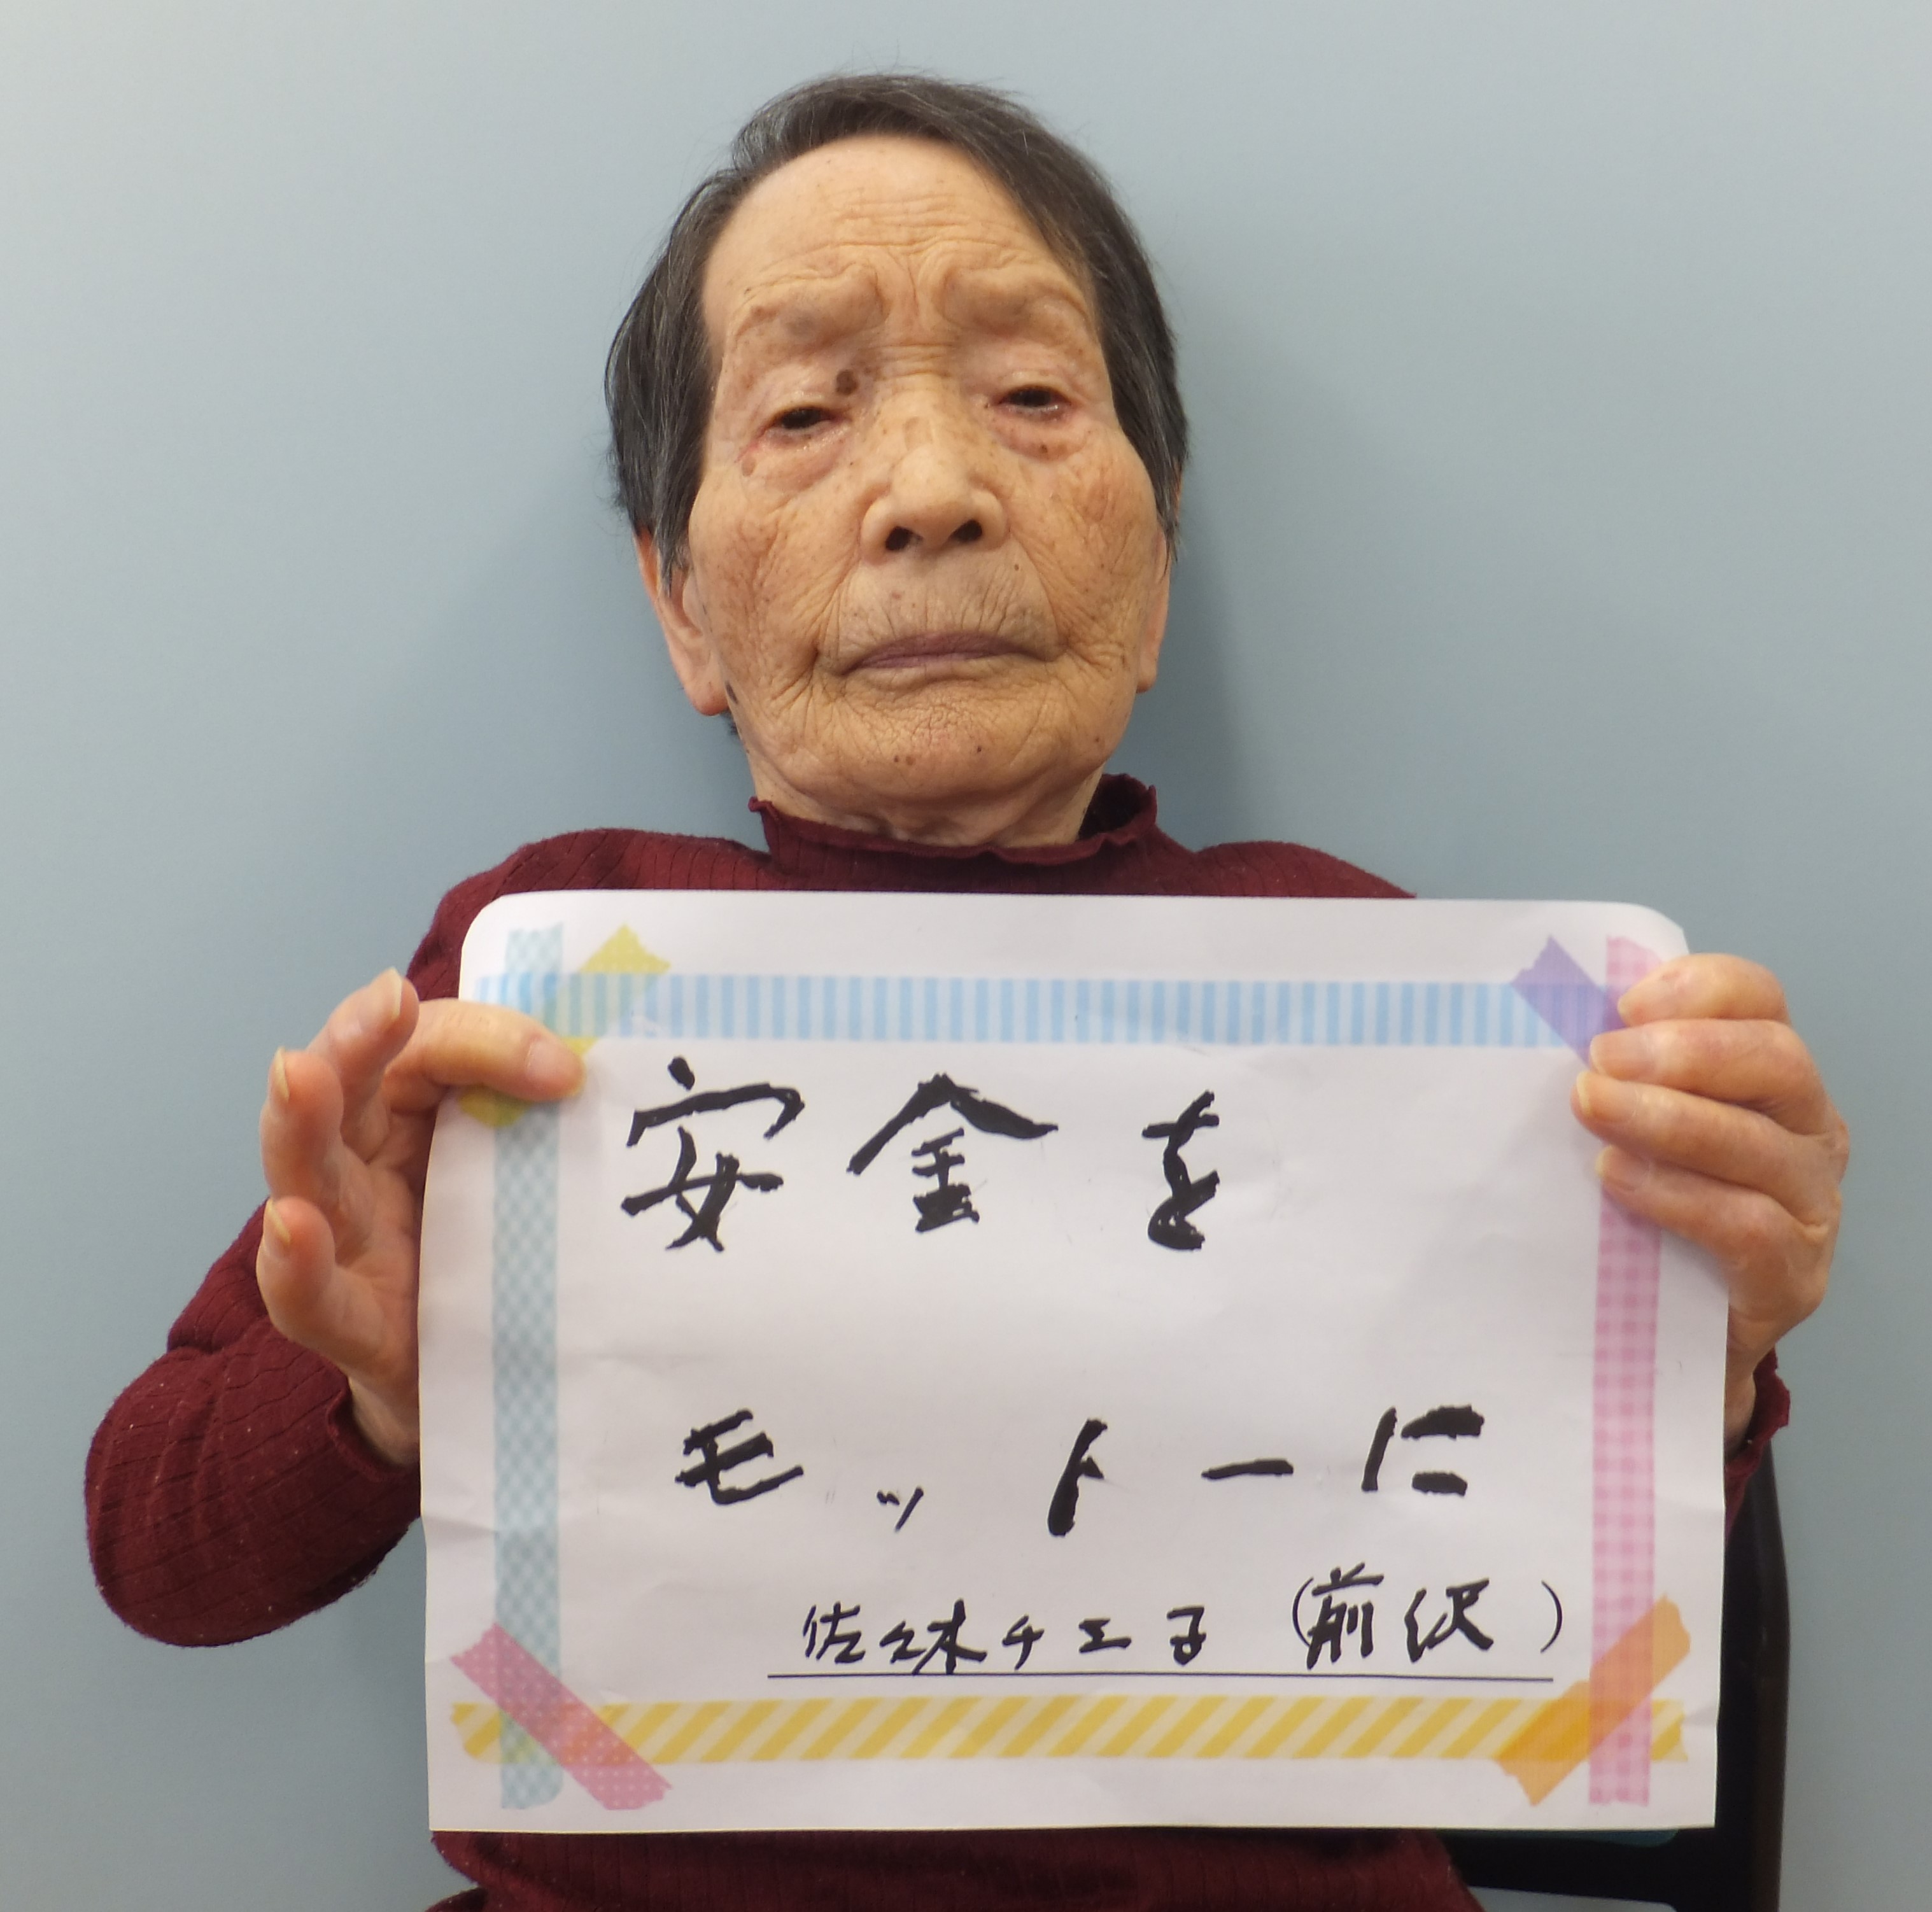 安全を
モットーに
佐々木チエ子（前沢）